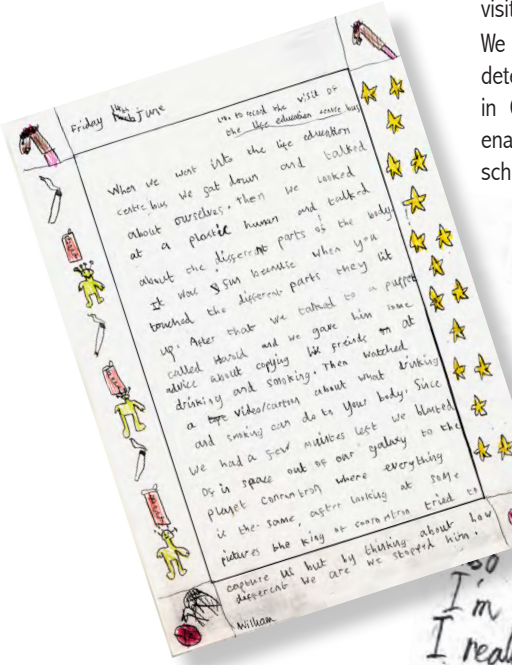 visit
We
dete
in
ena
sch
Friday 14th June
LO: to record the visit of
the life education centre bus
When we went into the life education
centre bus we sat down and talked
about ourselves. Then we looked
at a plastic human and talked
about the different parts of the body.
It was fun because when you
touched the different parts they lit
up. After that we talked to a puppet
called Harold and we gave him some
advice about copying friends at
drinking and smoking. Then watched
a video/cartoon about what drinking
and smoking can do to your body. Since
we had a few minutes left we blasted
of in space out of our galaxy to the
planet where everything
is the same, after looking at some
pictures the king of tried to
capture us but by thinking about how
different we are we stopped him.
William
so
I'm
I real